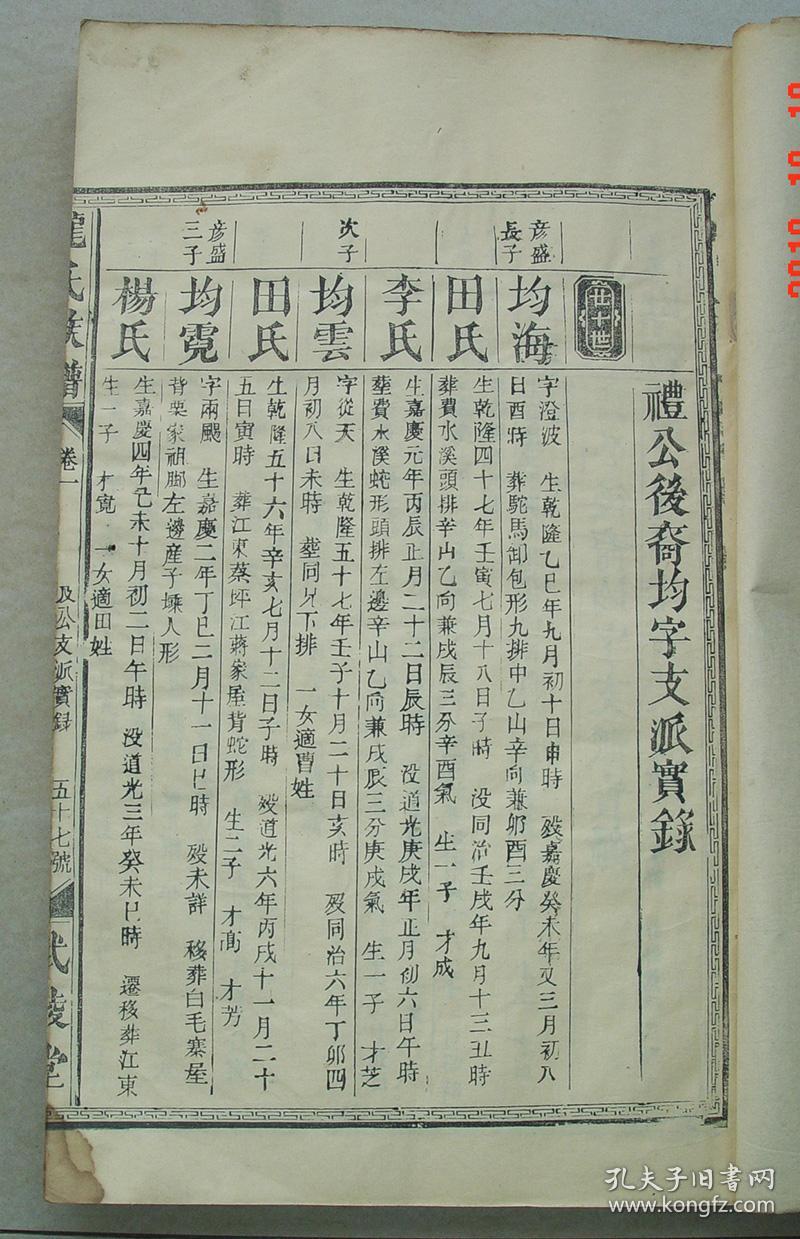 禮公後裔均字支派實錄
廿十世
彥盛長子
均海
字澄波 生乾隆乙巳年九月初十日申時 歿嘉慶癸未年又三月初八
日酉時 葬駝馬卸包形九排中乙山辛向兼卯酉三分
田氏
生乾隆四十七年壬寅七月十八日子時 没同治壬戌年九月十三丑時
葬費水溪頭排辛山乙向兼戌辰三分辛酉氣 生一子 才成
李氏
生嘉慶元年丙辰正月二十二日辰時 没道光庚戌年正月初六日午時
塟費水溪蛇形頭排左邊辛山乙向兼戌辰三分庚戌氣 生一子 才芝
次子
均雲
字從天 生乾隆五十七年壬子十月二十日亥時 歿同治六年丁卯四
月初八日未時 塟同兄下排 一女適曹姓
田氏
生乾隆五十六年辛亥七月十二日子時 歿道光六年丙戌十一月二十
五日寅時 葬江東蔡坪江蔣家屋背蛇形 生二子 才高 才芳
彥盛三子
均霓
字兩颺 生嘉慶二年丁巳二月十一日巳時 歿未詳 移葬白毛寨屋
背栗家祖脚左邊産子㙡人形
楊氏
生嘉慶四年己未十月初二日午時 没道光三年癸未巳時 遷移葬江東
生一子 才寛 一女適田姓
氏族譜
卷一
及公支派實録
五十七號
武陵堂
2019 10 10
孔夫子旧书网
www.kongfz.com